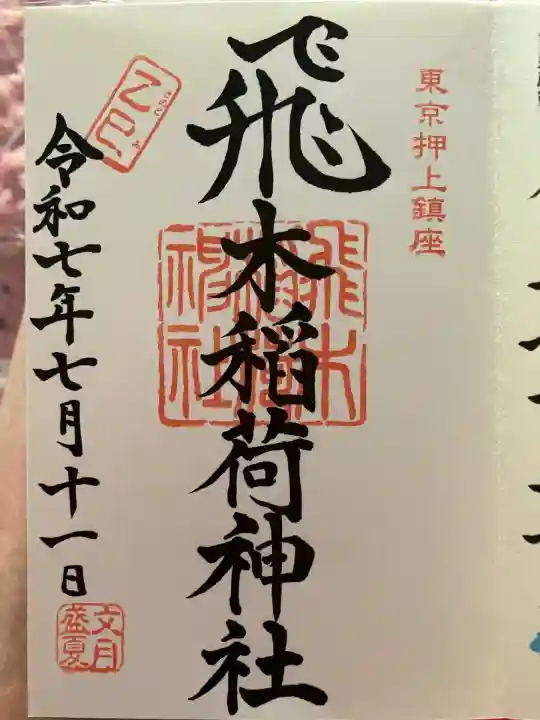 東京押上鎮座
飛木稲荷神社
飛木稲荷神社
令和七年七月十一日
文月
盛夏